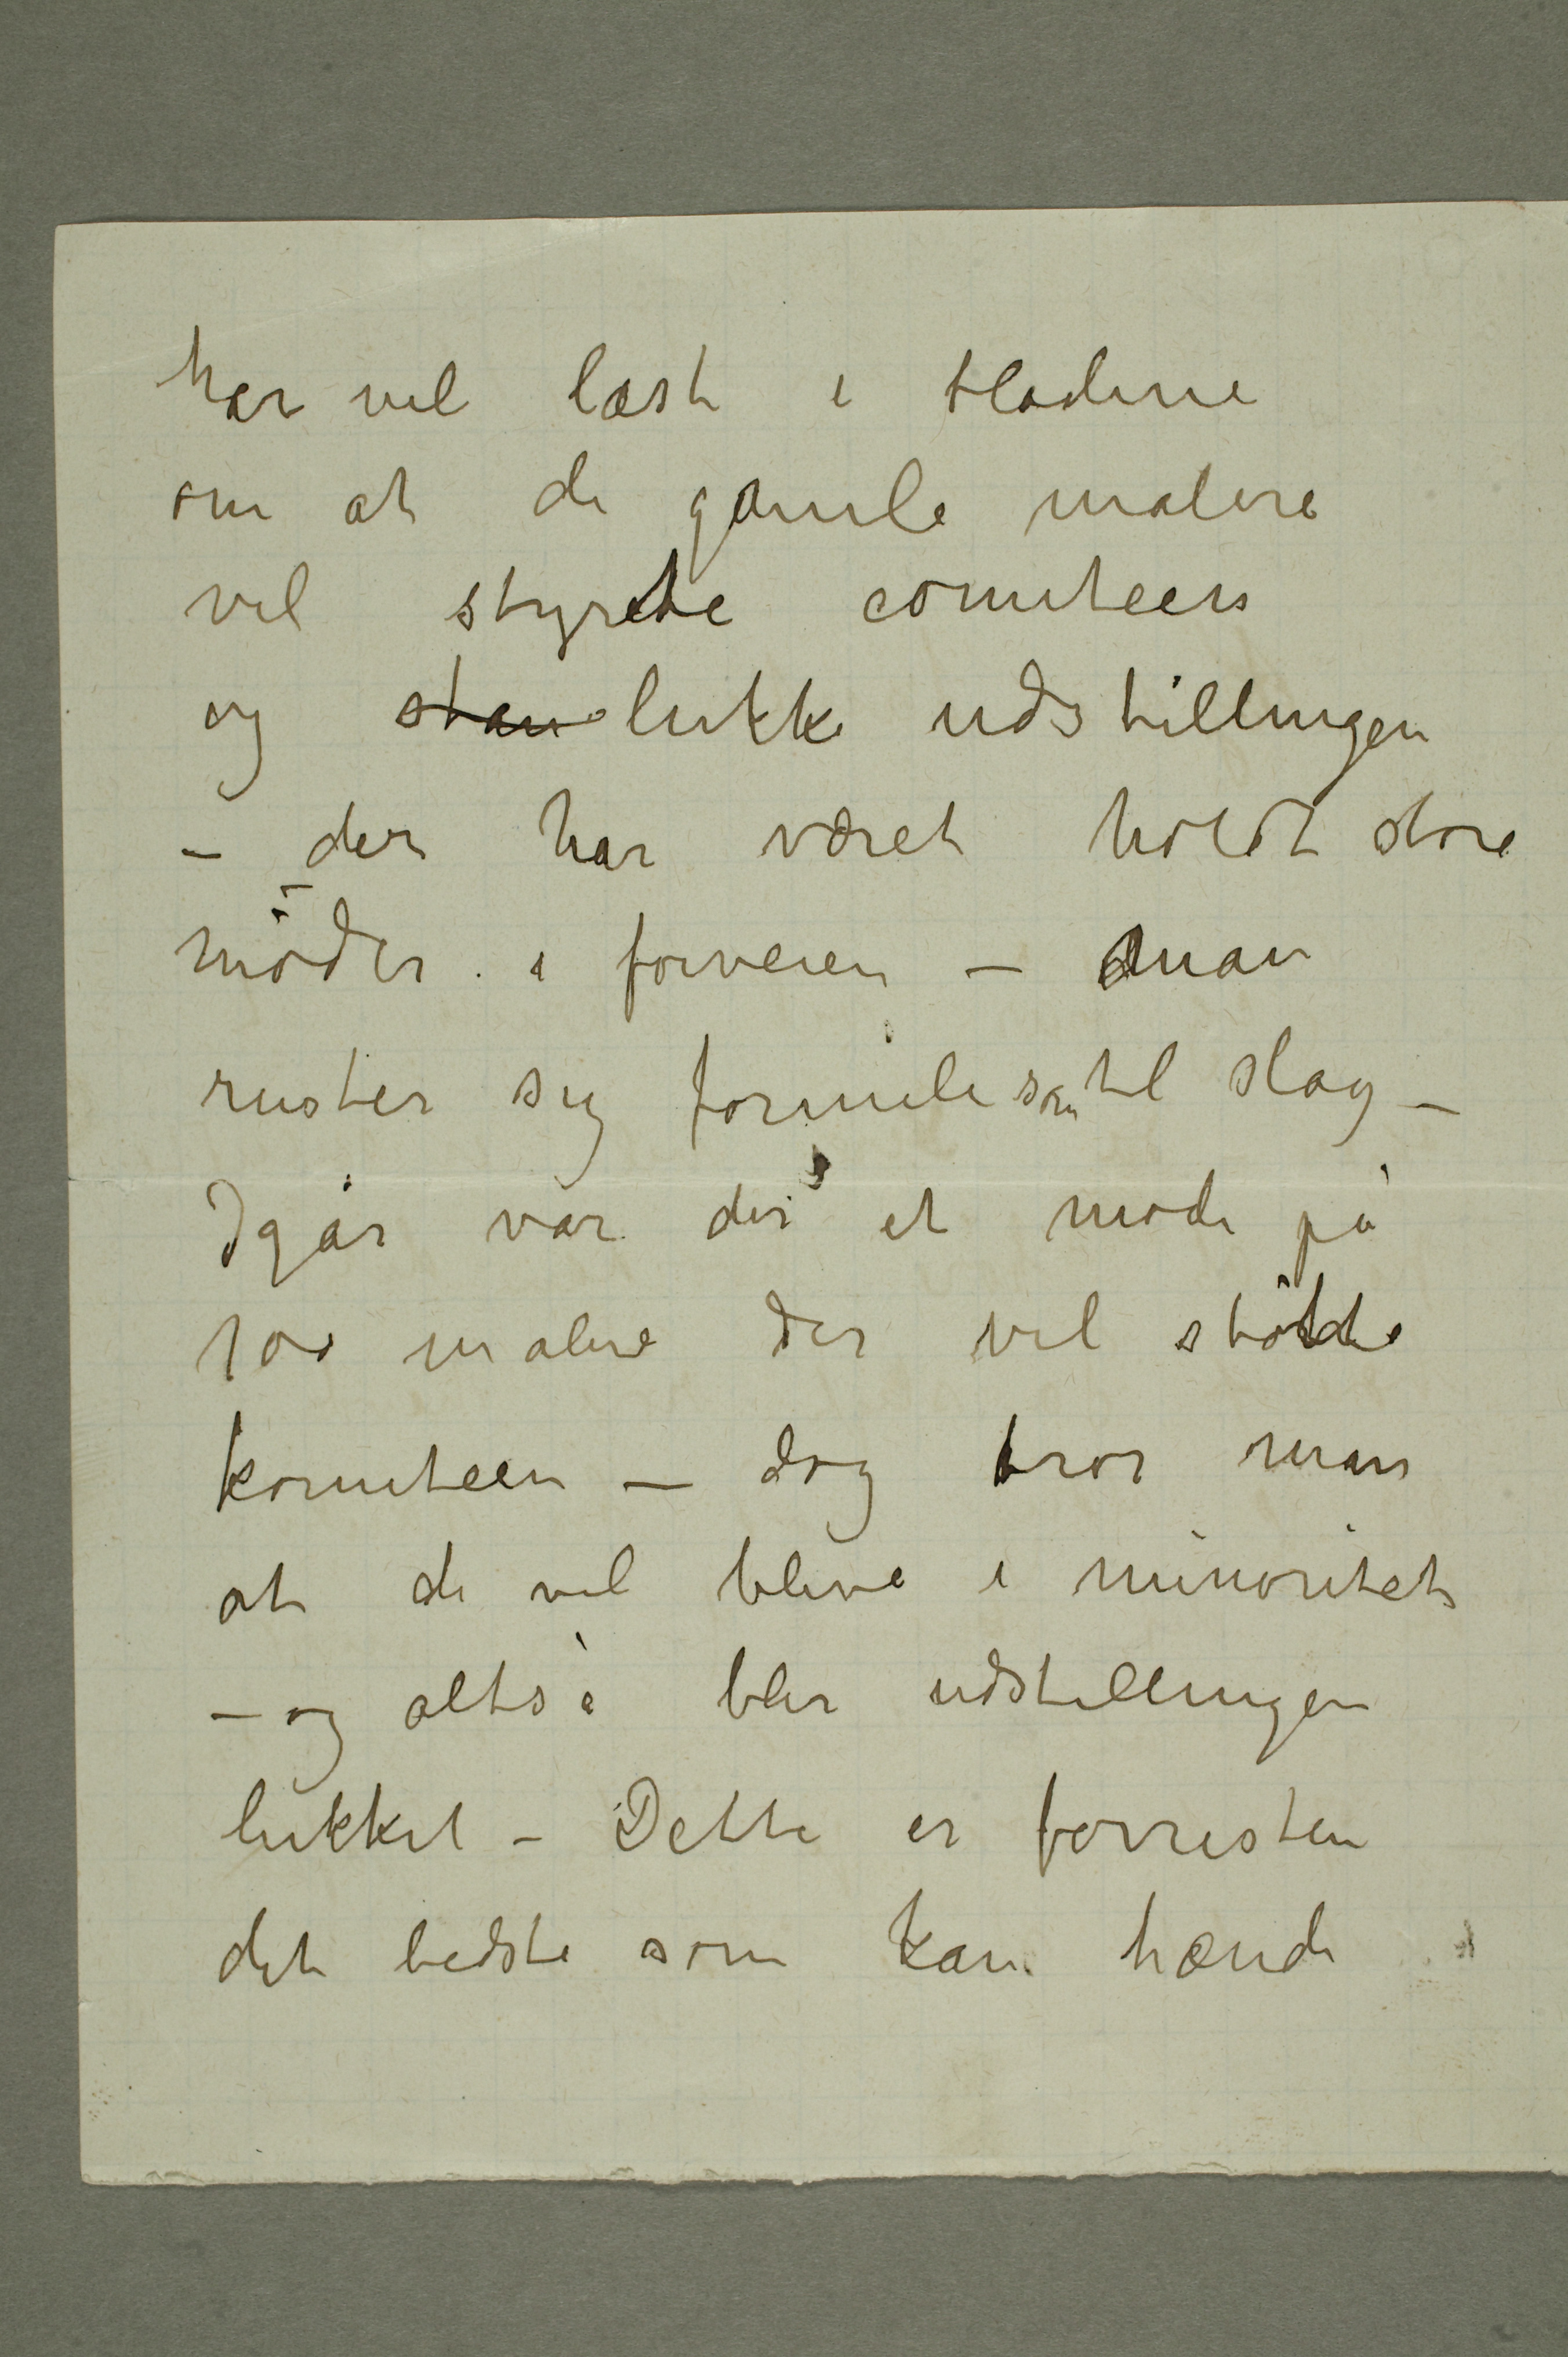 har vel læst i bladene
om at de gamle malere
vil styrte comiteen
og stan lukke udstillingen
– der har været holdt store
möder i forveien – man
ruster sig formelig som til slag –
Igår var der et möde på
100 malere der vil stötte
komiteen – dog tror man
at de vil blive i minoritet
– og altså blir udstillingen
lukket – Dette er forresten
det bedste som kan hænde